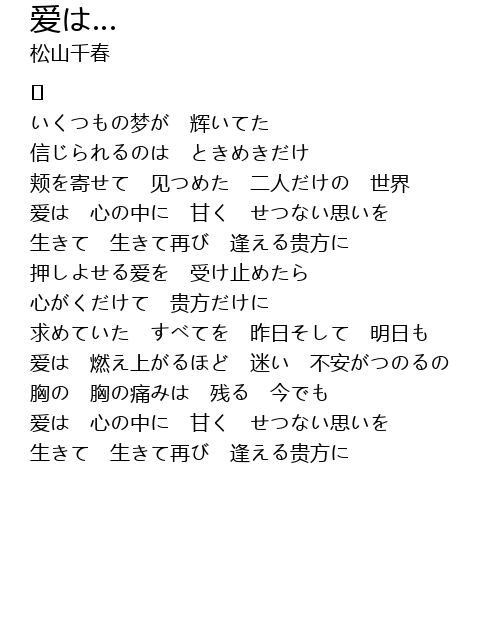 爱は...
松山千春
いくつもの梦が　辉いてた
信じられるのは　ときめきだけ
颊を寄せて　见つめた　二人だけの　世界
爱は　心の中に　甘く　せつない思いを
生きて　生きて再び　逢える贵方に
押しよせる爱を　受け止めたら
心がくだけて　贵方だけに
求めていた　すべてを　昨日そして　明日も
爱は　燃え上がるほど　迷い　不安がつのるの
胸の　胸の痛みは　残る　今でも
爱は　心の中に　甘く　せつない思いを
生きて　生きて再び　逢える贵方に